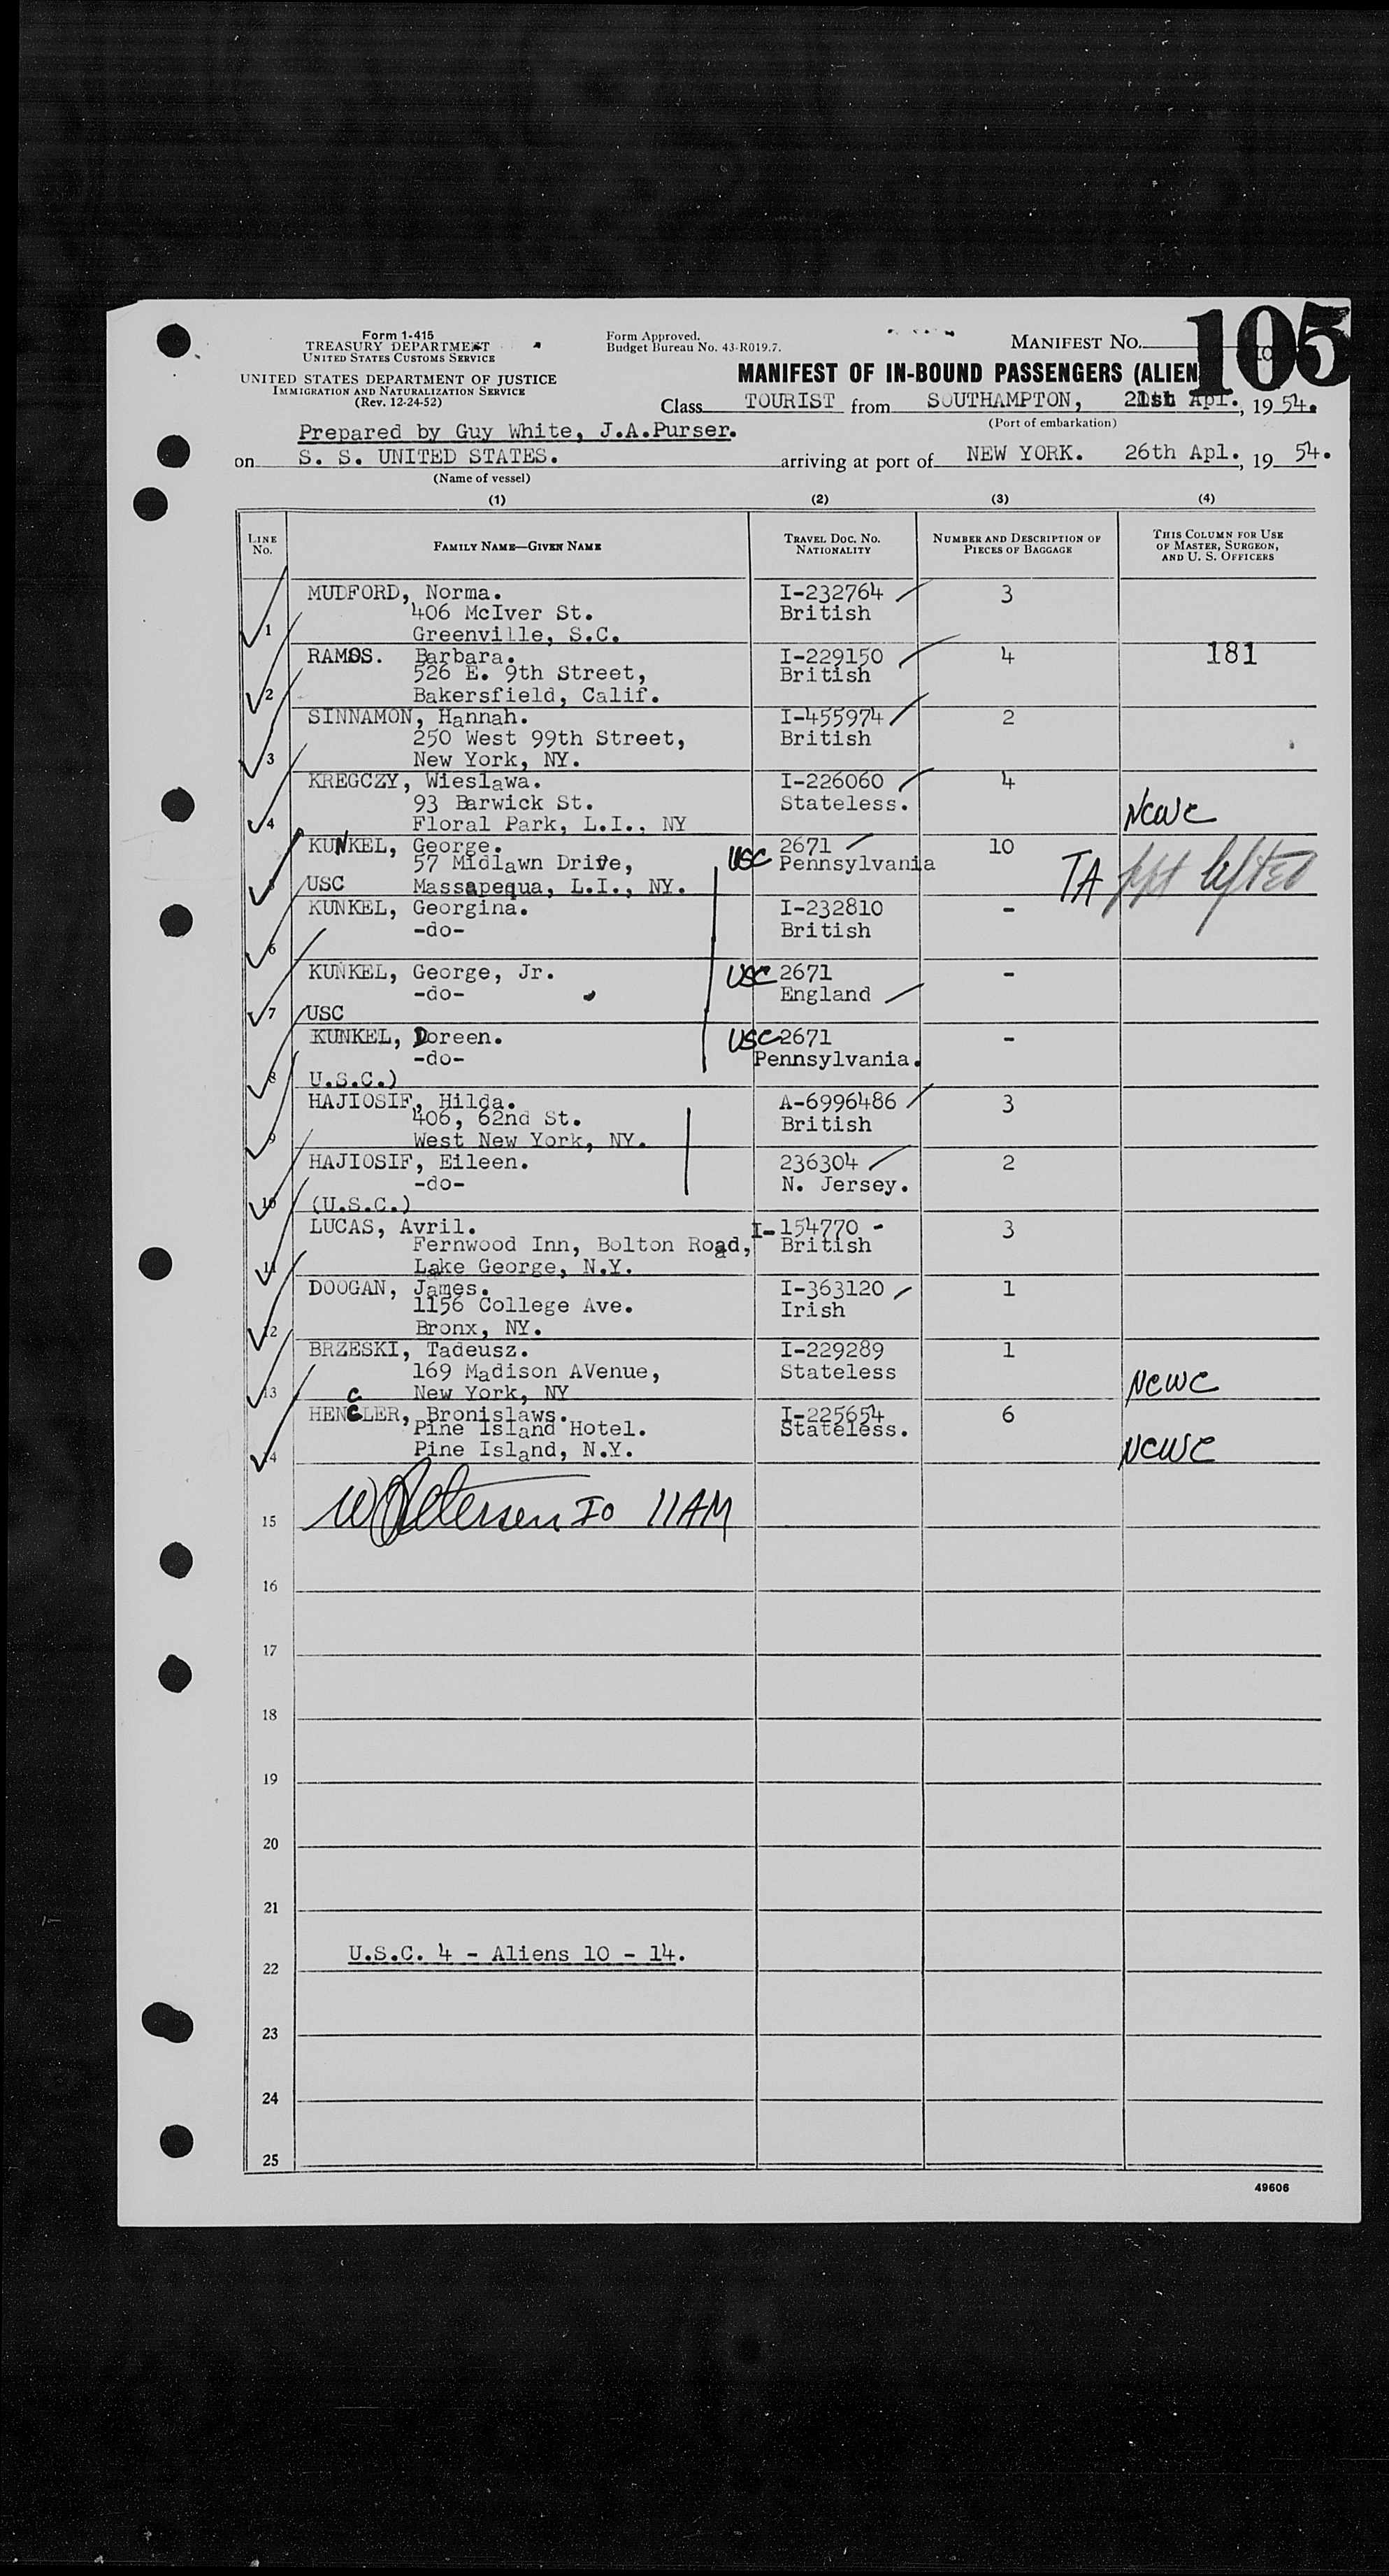 Form 1-415
TREASURY DEPARTMENT
UNITED STATES CUSTOMS SERVICE
UNITED STATES DEPARTMENT OF JUSTICE
IMMIGRATION AND NATURALIZATION SERVICE
(Rev. 12-24-52)
Form Approved.
Budget Bureau No. 43-R019.7.
MANIFEST NO.
105
MANIFEST OF IN-BOUND PASSENGERS (ALIEN
Class TOURIST from SOUTHAMPTON, 21st Apl., 1954.
(Port of embarkation)
Prepared by Guy White, J.A.Purser.
on S. S. UNITED STATES. arriving at port of NEW YORK. 26th Apl., 19 54.
(Name of vessel)
(1) (2) (3) (4)
LINE NO. FAMILY NAME—GIVEN NAME TRAVEL DOC. NO. NATIONALITY NUMBER AND DESCRIPTION OF PIECES OF BAGGAGE THIS COLUMN FOR USE OF MASTER, SURGEON, AND U. S. OFFICERS
MUDFORD, Norma. I-232764 3
406 McIver St. British
1 Greenville, S.C.
RAMOS. Barbara. I-229150 4 181
526 E. 9th Street, British
2 Bakersfield, Calif.
SINNAMON, Hannah. I-455974 2
250 West 99th Street, British
3 New York, NY.
KREGCZY, Wieslawa. I-226060 4
93 Barwick St. Stateless. NCWC
4 Floral Park, L.I., NY
KUNKEL, George. USC 2671 10
57 Midlawn Drive, Pennsylvania TA ppt lifted
USC Massapequa, L.I., NY.
KUNKEL, Georgina. I-232810 -
-do- British
6
KUNKEL, George, Jr. USC 2671 -
-do- England
7 USC
KUNKEL, Doreen. USC 2671 -
-do- Pennsylvania.
8 U.S.C.)
HAJIOSIF, Hilda. A-6996486 3
406, 62nd St. British
9 West New York, NY.
HAJIOSIF, Eileen. 236304 2
-do- N. Jersey.
10 (U.S.C.)
LUCAS, Avril. I-154770 - 3
Fernwood Inn, Bolton Road, British
11 Lake George, N.Y.
DOOGAN, James. I-363120 1
1156 College Ave. Irish
12 Bronx, NY.
BRZESKI, Tadeusz. I-229289 1
169 Madison AVenue, Stateless NCWC
13 New York, NY
C
HENCLER, Bronislaws. I-225654 6
Pine Island Hotel. Stateless.
14 Pine Island, N.Y. NCWC
15 Petersen IO 11AM
16
17
18
19
20
21
U.S.C. 4 - Aliens 10 - 14.
22
23
24
25
49606